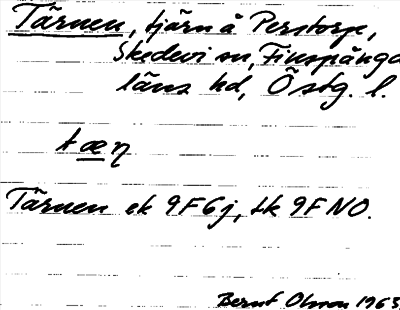 Tärnen, tjärn å Perstorp,
Skedevi sn, Finspånga
läns hd, Östg. l.
tæņ
Tärnen ek 9F6j, tk 9F NO.
Bernt Olsson 1963